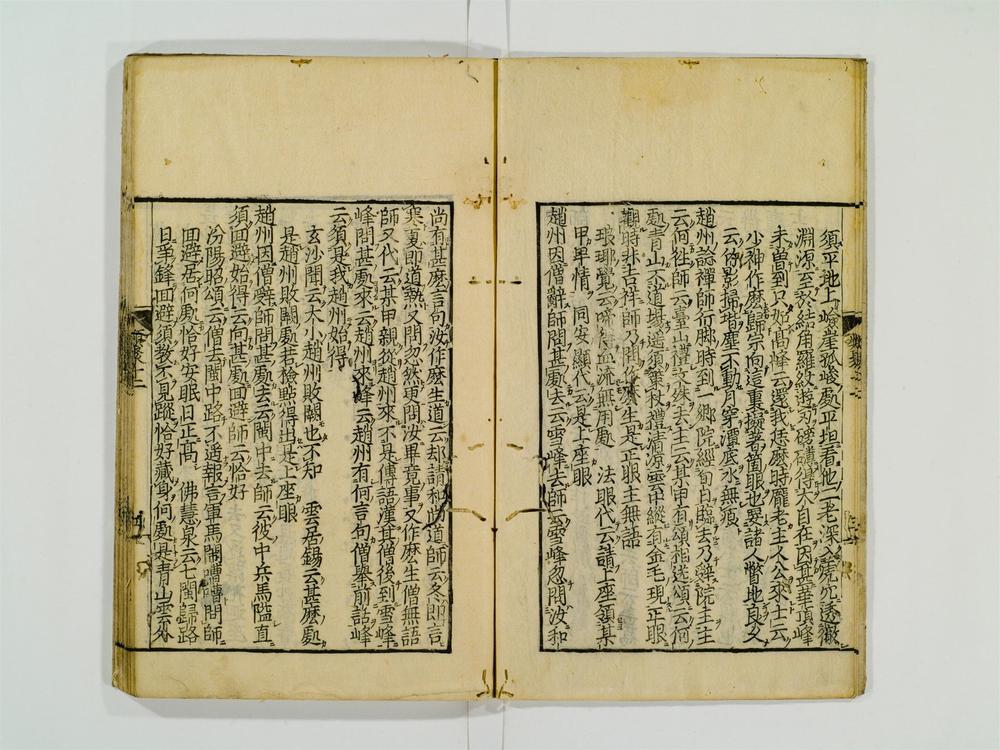 須平地上嶮崖孤峻處平坦看他二老深入虎穴透徹
淵源至於結角羅紋遊刃磅礴得大自在因甚華頂峰
未曽到只如高峰云還我恁麽時龐老主人公來十二云
少神作麽歸宗向這裏擬著箇眼也要諸人瞥地良久
云竹影掃堦塵不動月穿潭底水無痕
趙州諗禪師行脚時到一郷院經旬日臨去乃辭院主主
云何往師云臺山禮文殊去主云某甲有頌相送頌云何
處青山不道場遥須䇿杖禮清凉雲中縱有金毛現正眼
觀時非吉祥師乃問作麽生是正眼主無語
瑯瑘覺云啼得血流無用處　法眼代云請上座領某
甲卑情　同安顯代云是上座眼
趙州因僧辭師問甚處去云雪峰去師云雪峰忽問汝和
尚有甚麽言句汝作麽生道云却請和尚道師云冬即言
寒夏即道熱又問忽然更問汝畢竟事又作麽生僧無語
師又代云某甲親從趙州來不是傳語漢其僧後到雪峰
峰問甚處來云趙州來峰云趙州有何言句僧舉前話峰
云須是我趙州始得
玄沙聞云大小趙州敗闕也不知　雲居錫云甚麽處
是趙州敗闕處若檢點得出是上座眼
趙州因僧辭師問甚處去云閩中去師云彼中兵馬隘直
須回避始得云向甚處回避師云恰好
汾陽昭頌云僧去閩中路不遥報言軍馬鬧嘈嘈問師
回避居何處恰好安眠日正高　佛慧泉云七閩歸路
日爭鋒回避須教不見蹤恰好藏身何處是青山雲外